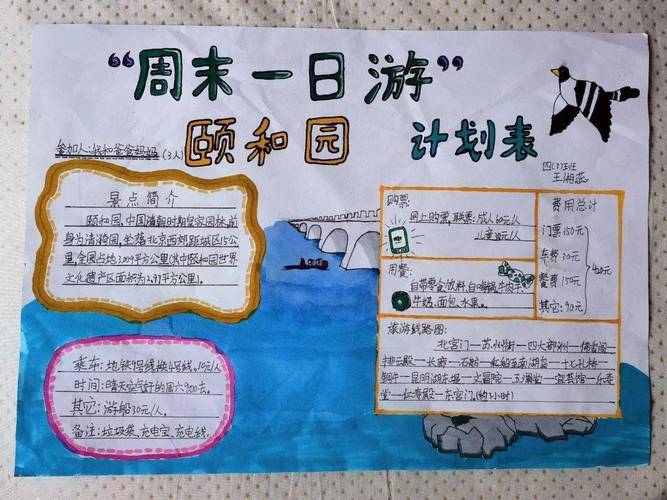 “周末一日游”
颐和园 计划表
参加人:我和爸爸妈妈(3人)
四(3)班
王湘蕊
景点简介
颐和园,中国清朝时期皇家园林,前
身为清漪园,坐落北京西郊,距城区15公
里,全园占地3.009平方公里(其中颐和园世界
文化遗产区面积为2.97平方公里)。
乘车:地铁7号线换4号线,10元/人
时间:晴天空气好的周六9:00去。
其它:游船30元/人。
备注:垃圾袋、充电宝、充电线。
购票:
网上购票,联票:成人60元/人
儿童30元/人
用餐:
自带零食饮料,自嗨锅、牛肉干、
牛奶、面包、水果。
费用总计
门票150元
车费30元
餐费150元
其它:90元
420元
旅游线路图:
北宫门—苏州街—四大部洲—佛香阁
排云殿—长廊—石舫—乘船至南湖岛—十七孔桥
铜牛—昆明湖东堤—文昌院—玉澜堂—宜芸馆—乐寿
堂—仁寿殿—东宫门。(约3小时)